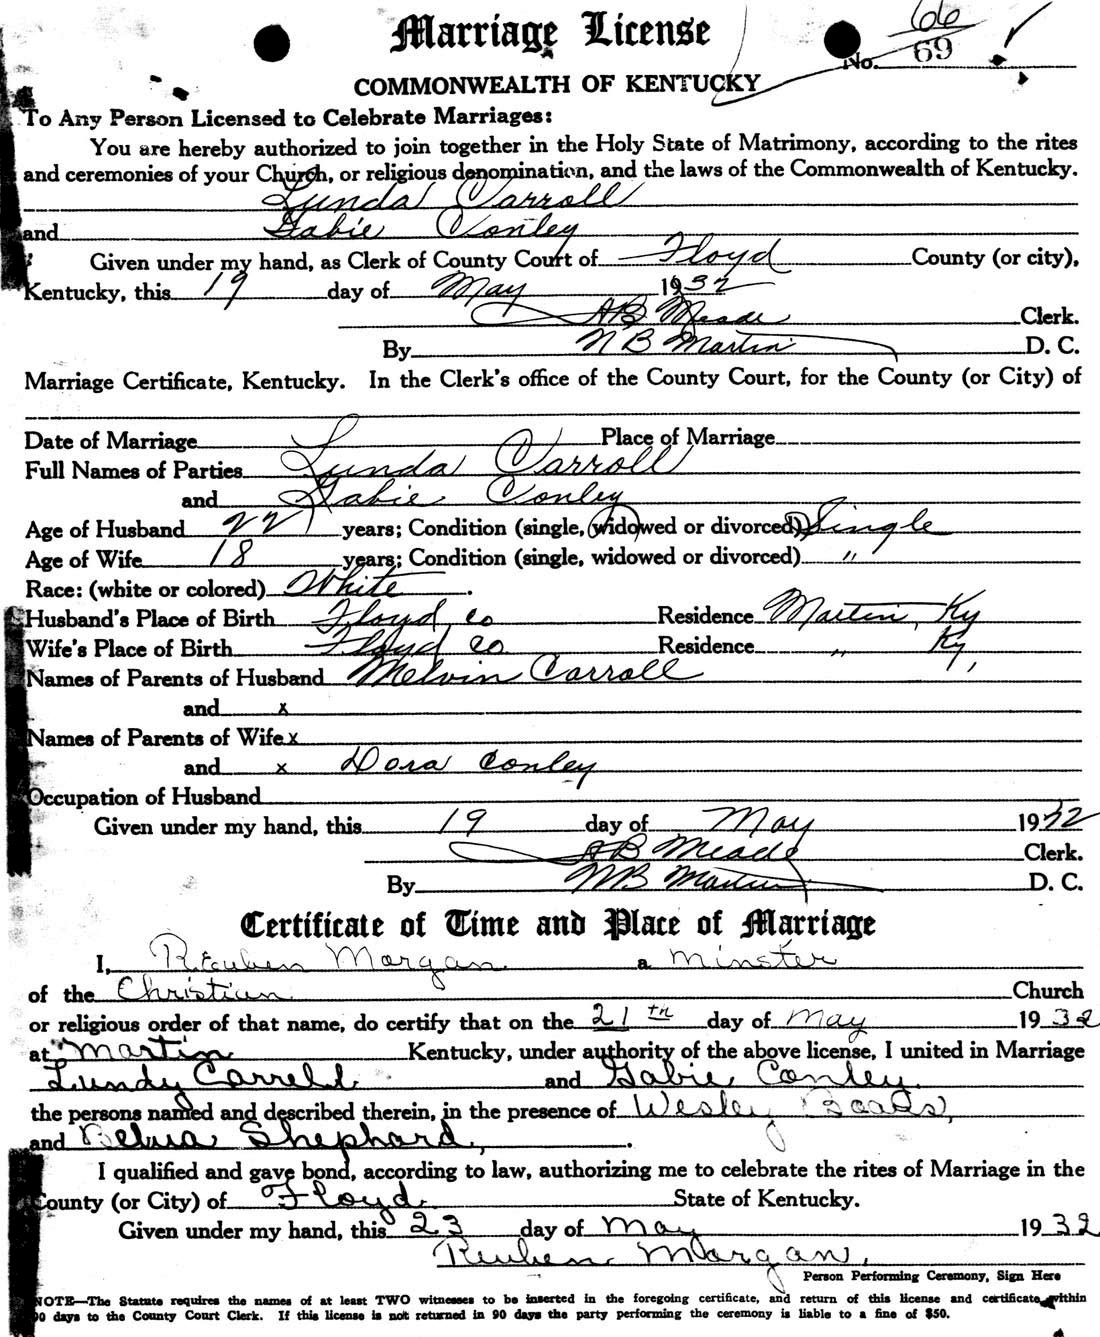 Marriage License
66
No. 69
COMMONWEALTH OF KENTUCKY
To Any Person Licensed to Celebrate Marriages:
You are hereby authorized to join together in the Holy State of Matrimony, according to the rites
and ceremonies of your Church, or religious denomination, and the laws of the Commonwealth of Kentucky.
Lunda Carroll
and Gabie Conley
Given under my hand, as Clerk of County Court of Floyd County (or city),
Kentucky, this 19 day of May 1932
A B Meade Clerk.
By N B Martin D. C.
Marriage Certificate, Kentucky. In the Clerk's office of the County Court, for the County (or City) of
Date of Marriage Place of Marriage
Full Names of Parties Lunda Carroll
and Gabie Conley
Age of Husband 22 years; Condition (single, widowed or divorced) Single
Age of Wife 18 years; Condition (single, widowed or divorced) "
Race: (white or colored) White.
Husband's Place of Birth Floyd Co Residence Martin, Ky
Wife's Place of Birth Floyd Co. Residence " Ky,
Names of Parents of Husband Melvin Carroll
and x
Names of Parents of Wife x
and x Dora Conley
Occupation of Husband
Given under my hand, this 19 day of May 1932
A B Meade Clerk.
By N B Martin D. C.
Certificate of Time and Place of Marriage
I, Reuben Morgan a Minster
of the Christian Church
or religious order of that name, do certify that on the 21th day of May 1932
at Martin Kentucky, under authority of the above license, I united in Marriage
Lundy Carrell and Gabie Conley.
the persons named and described therein, in the presence of Wesley
and Shephard,.
I qualified and gave bond, according to law, authorizing me to celebrate the rites of Marriage in the
County (or City) of Floyd. State of Kentucky.
Given under my hand, this 23 day of May 1932
Reuben Morgan,
Person Performing Ceremony, Sign Here
NOTE—The Statute requires the names of at least TWO witnesses to be inserted in the foregoing certificate, and return of this license and certificate within
90 days to the County Court Clerk. If this license is not returned in 90 days the party performing the ceremony is liable to a fine of $50.